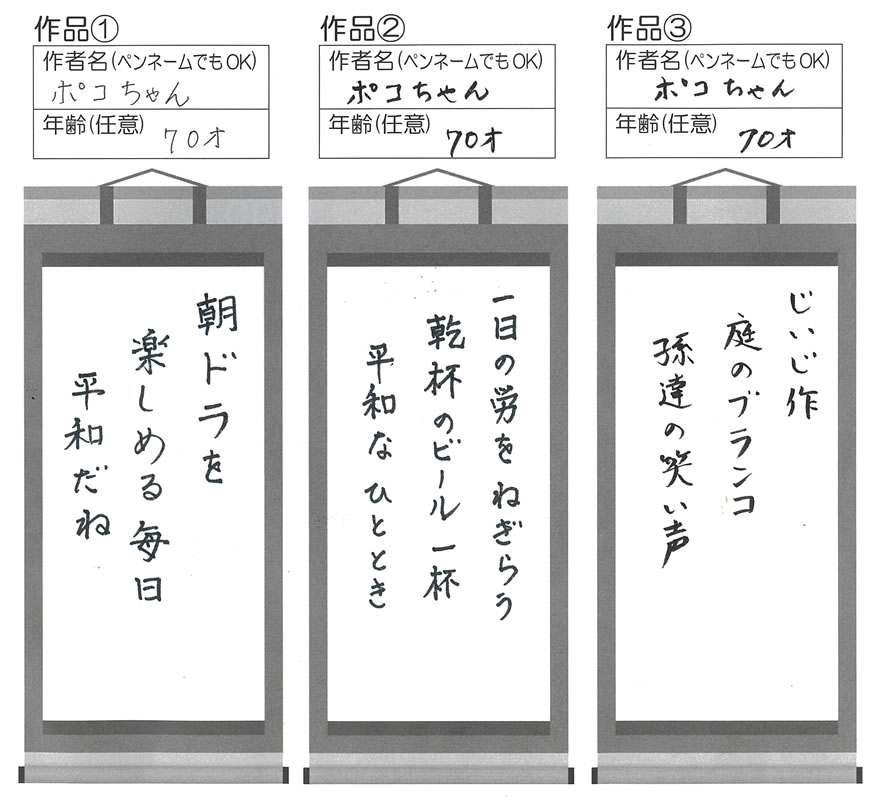 作品①
作者名(ペンネームでもOK)
ポコちゃん
年齢(任意)
70才
朝ドラを
楽しめる毎日
平和だね
作品②
作者名(ペンネームでもOK)
ポコちゃん
年齢(任意)
70才
一日の労をねぎらう
乾杯のビール一杯
平和なひととき
作品③
作者名(ペンネームでもOK)
ポコちゃん
年齢(任意)
70才
じいじ作
庭のブランコ
孫達の笑い声